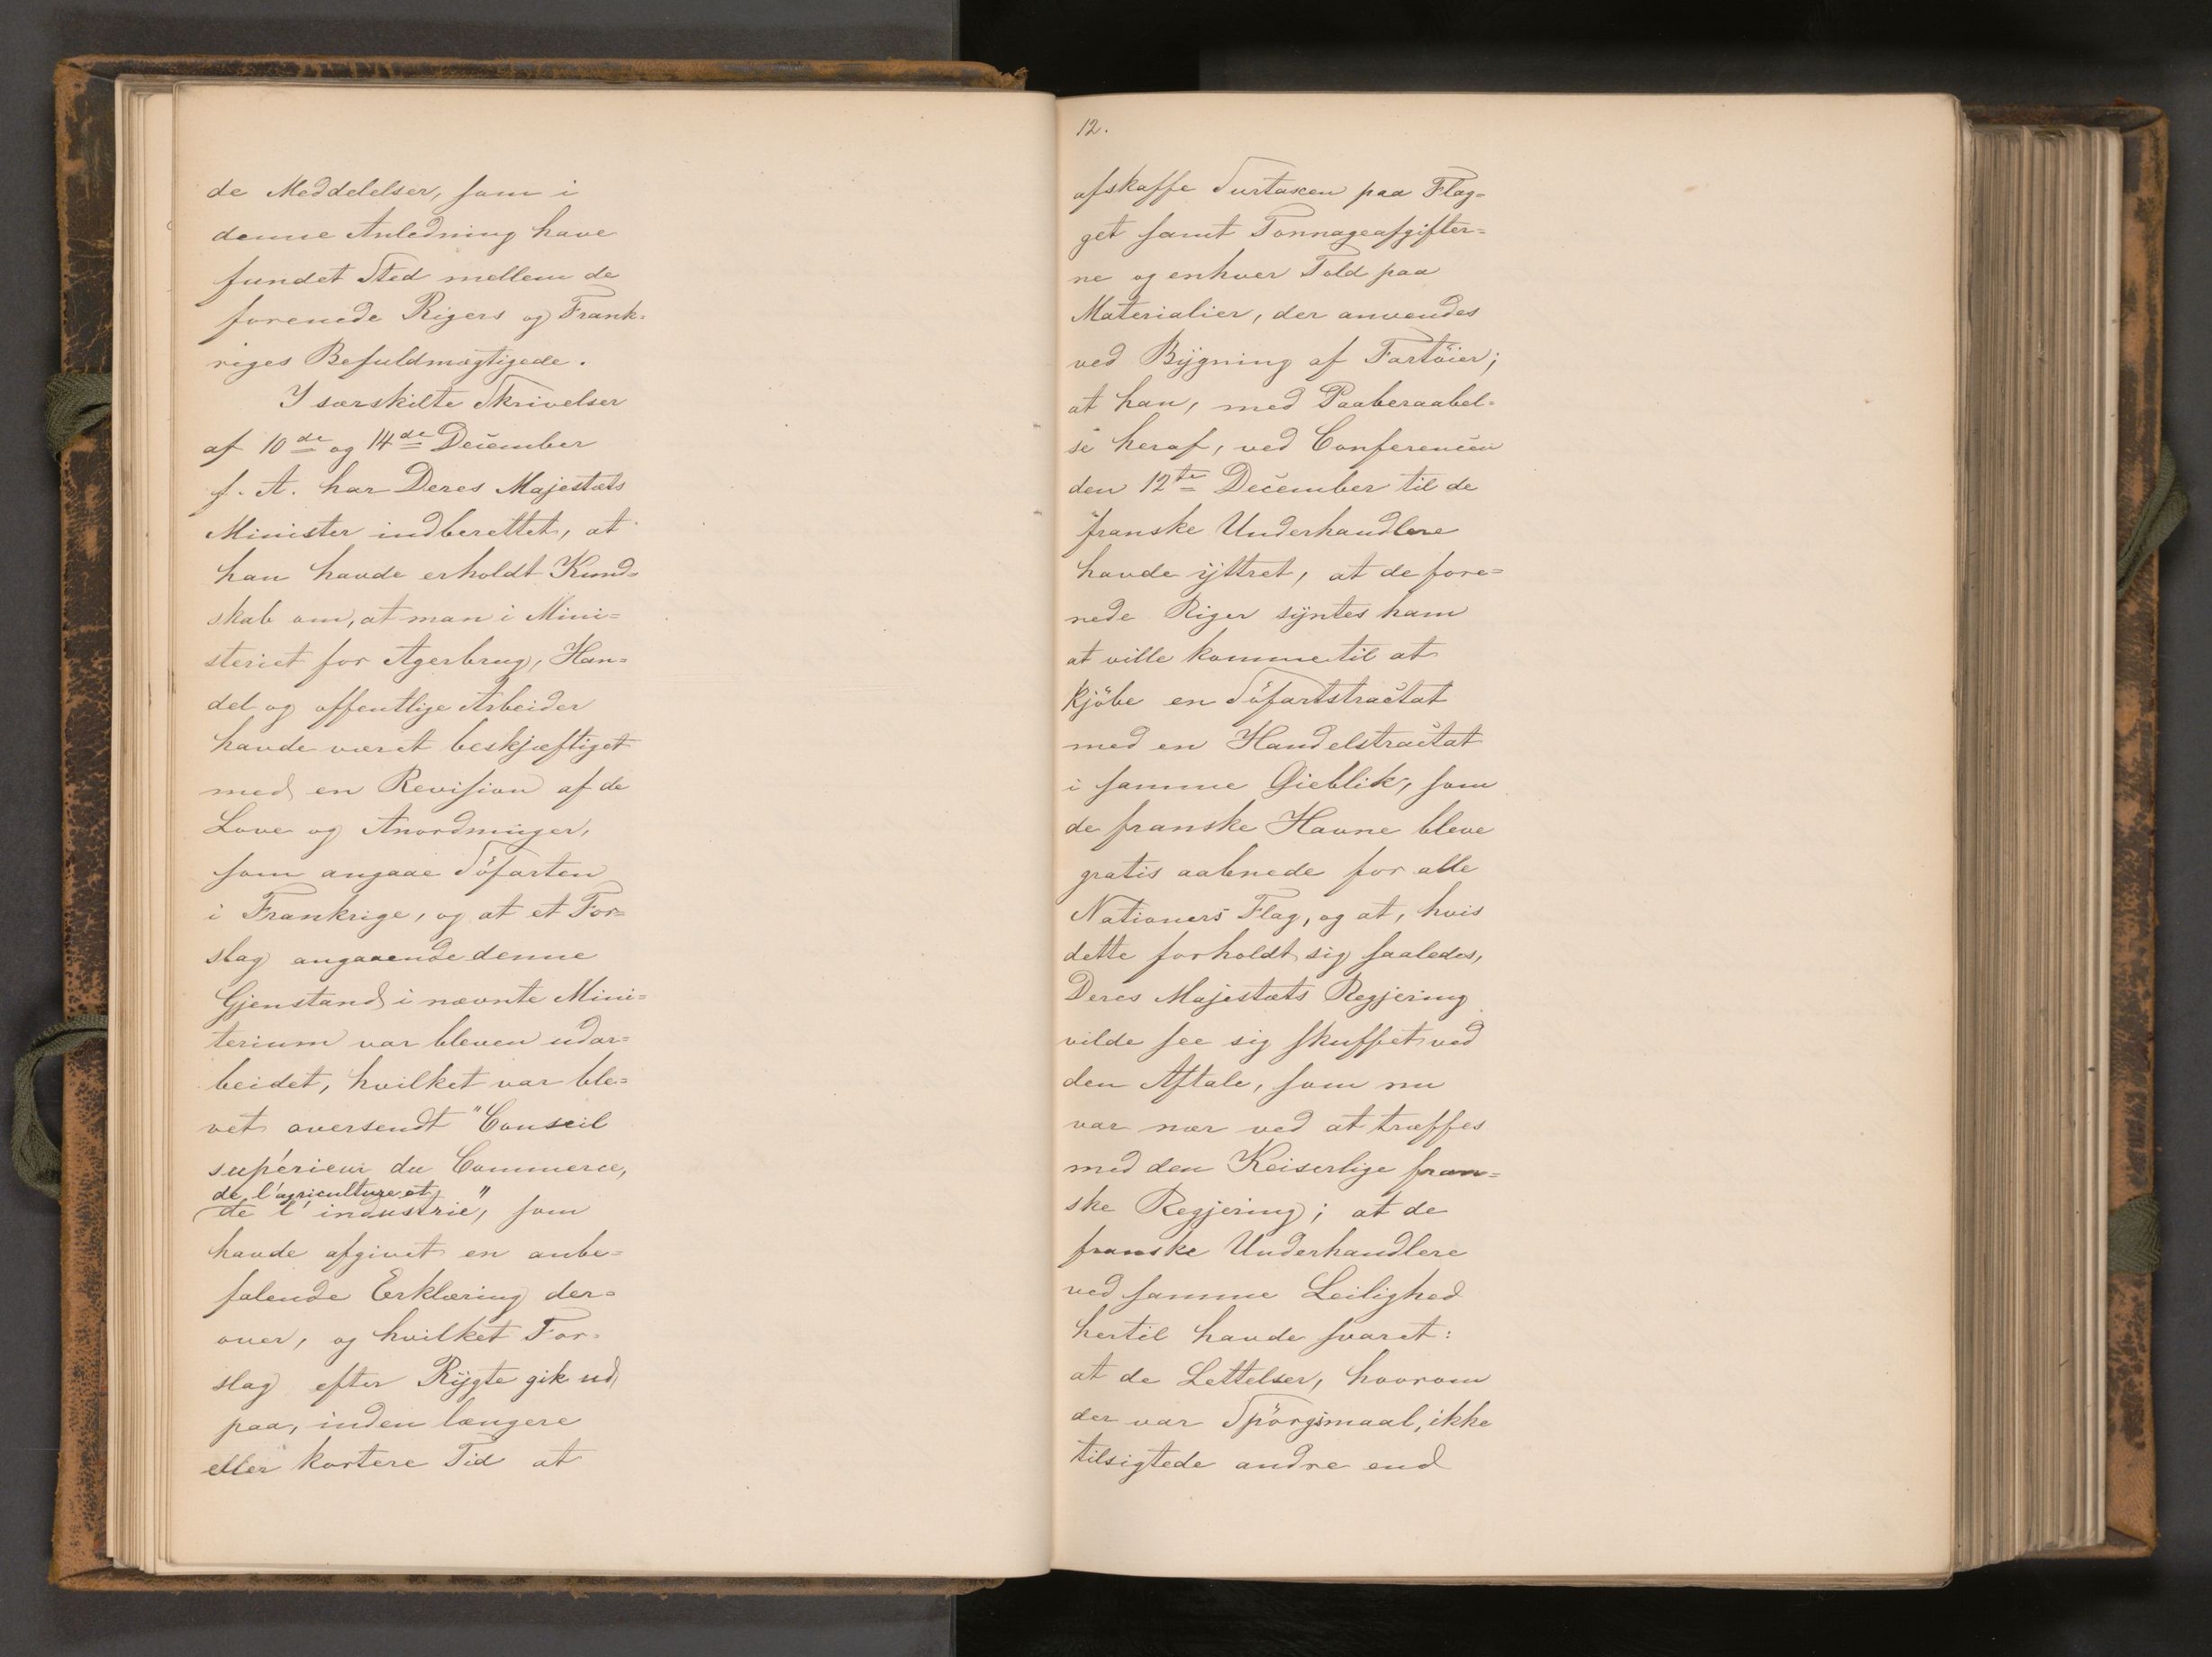 de Meddelelser, som i
denne Anledning have
fundet Sted mellem de
forenede Rigers og Frank-
riges Befuldmægtigede.
I særskilte Skrivelser
af 10de og 14de December
f. A. har Deres Majestæts
Minister indberettet, at
han havde erholdt Kund-
skab om, at man i Mini-
steriet for Agerbrug, Han-
del og offentlige Arbeider
havde været beskjæftiget
med en Revision af de
Love og Anordninger,
som angaae Söfarten
i Frankrige, og at et For-
slag angaaende denne
Gjenstand i nævnte Mini-
terium var bleven udar-
beidet, hvilket var ble-
vet oversendt "Conseil
supérieur du Commerce,
de l'agriculture et
de l'industrie", som
havde afgivet en anbe-
falende Erklæring der-
over, og hvilket For-
slag efter Rÿgte gik ud
paa, inden længere
eller kortere Tid at
12.
afskaffe Surtaxen paa Flag-
get samt Tonnageafgifter-
ne og enhver Told paa
Materialier, der anvendes
ved Bÿgning af Fartöier;
at han, med Paaberaabel-
se heraf, ved Conferencen
den 12te December til de
franske Underhandlere
havde ÿttret, at de fore-
nede Riger sÿntes ham
at ville komme til at
kjöbe en Söfartstractat
med en Handelstractat
i samme Öieblik, som
de franske Havne bleve
gratis aabnede for alle
Nationers Flag, og at, hvis
dette forholdt sig saaledes,
Deres Majestæts Regjering
vilde see sig skuffet ved
den Aftale, som nu
var nær ved at træffes
med den Keiserlige fran-
ske Regjering; at de
franske Underhandlere
ved samme Leilighed
hertil havde svaret:
at de Lettelser, hvorom
der var Spörgsmaal, ikke
tilsigtede andre end